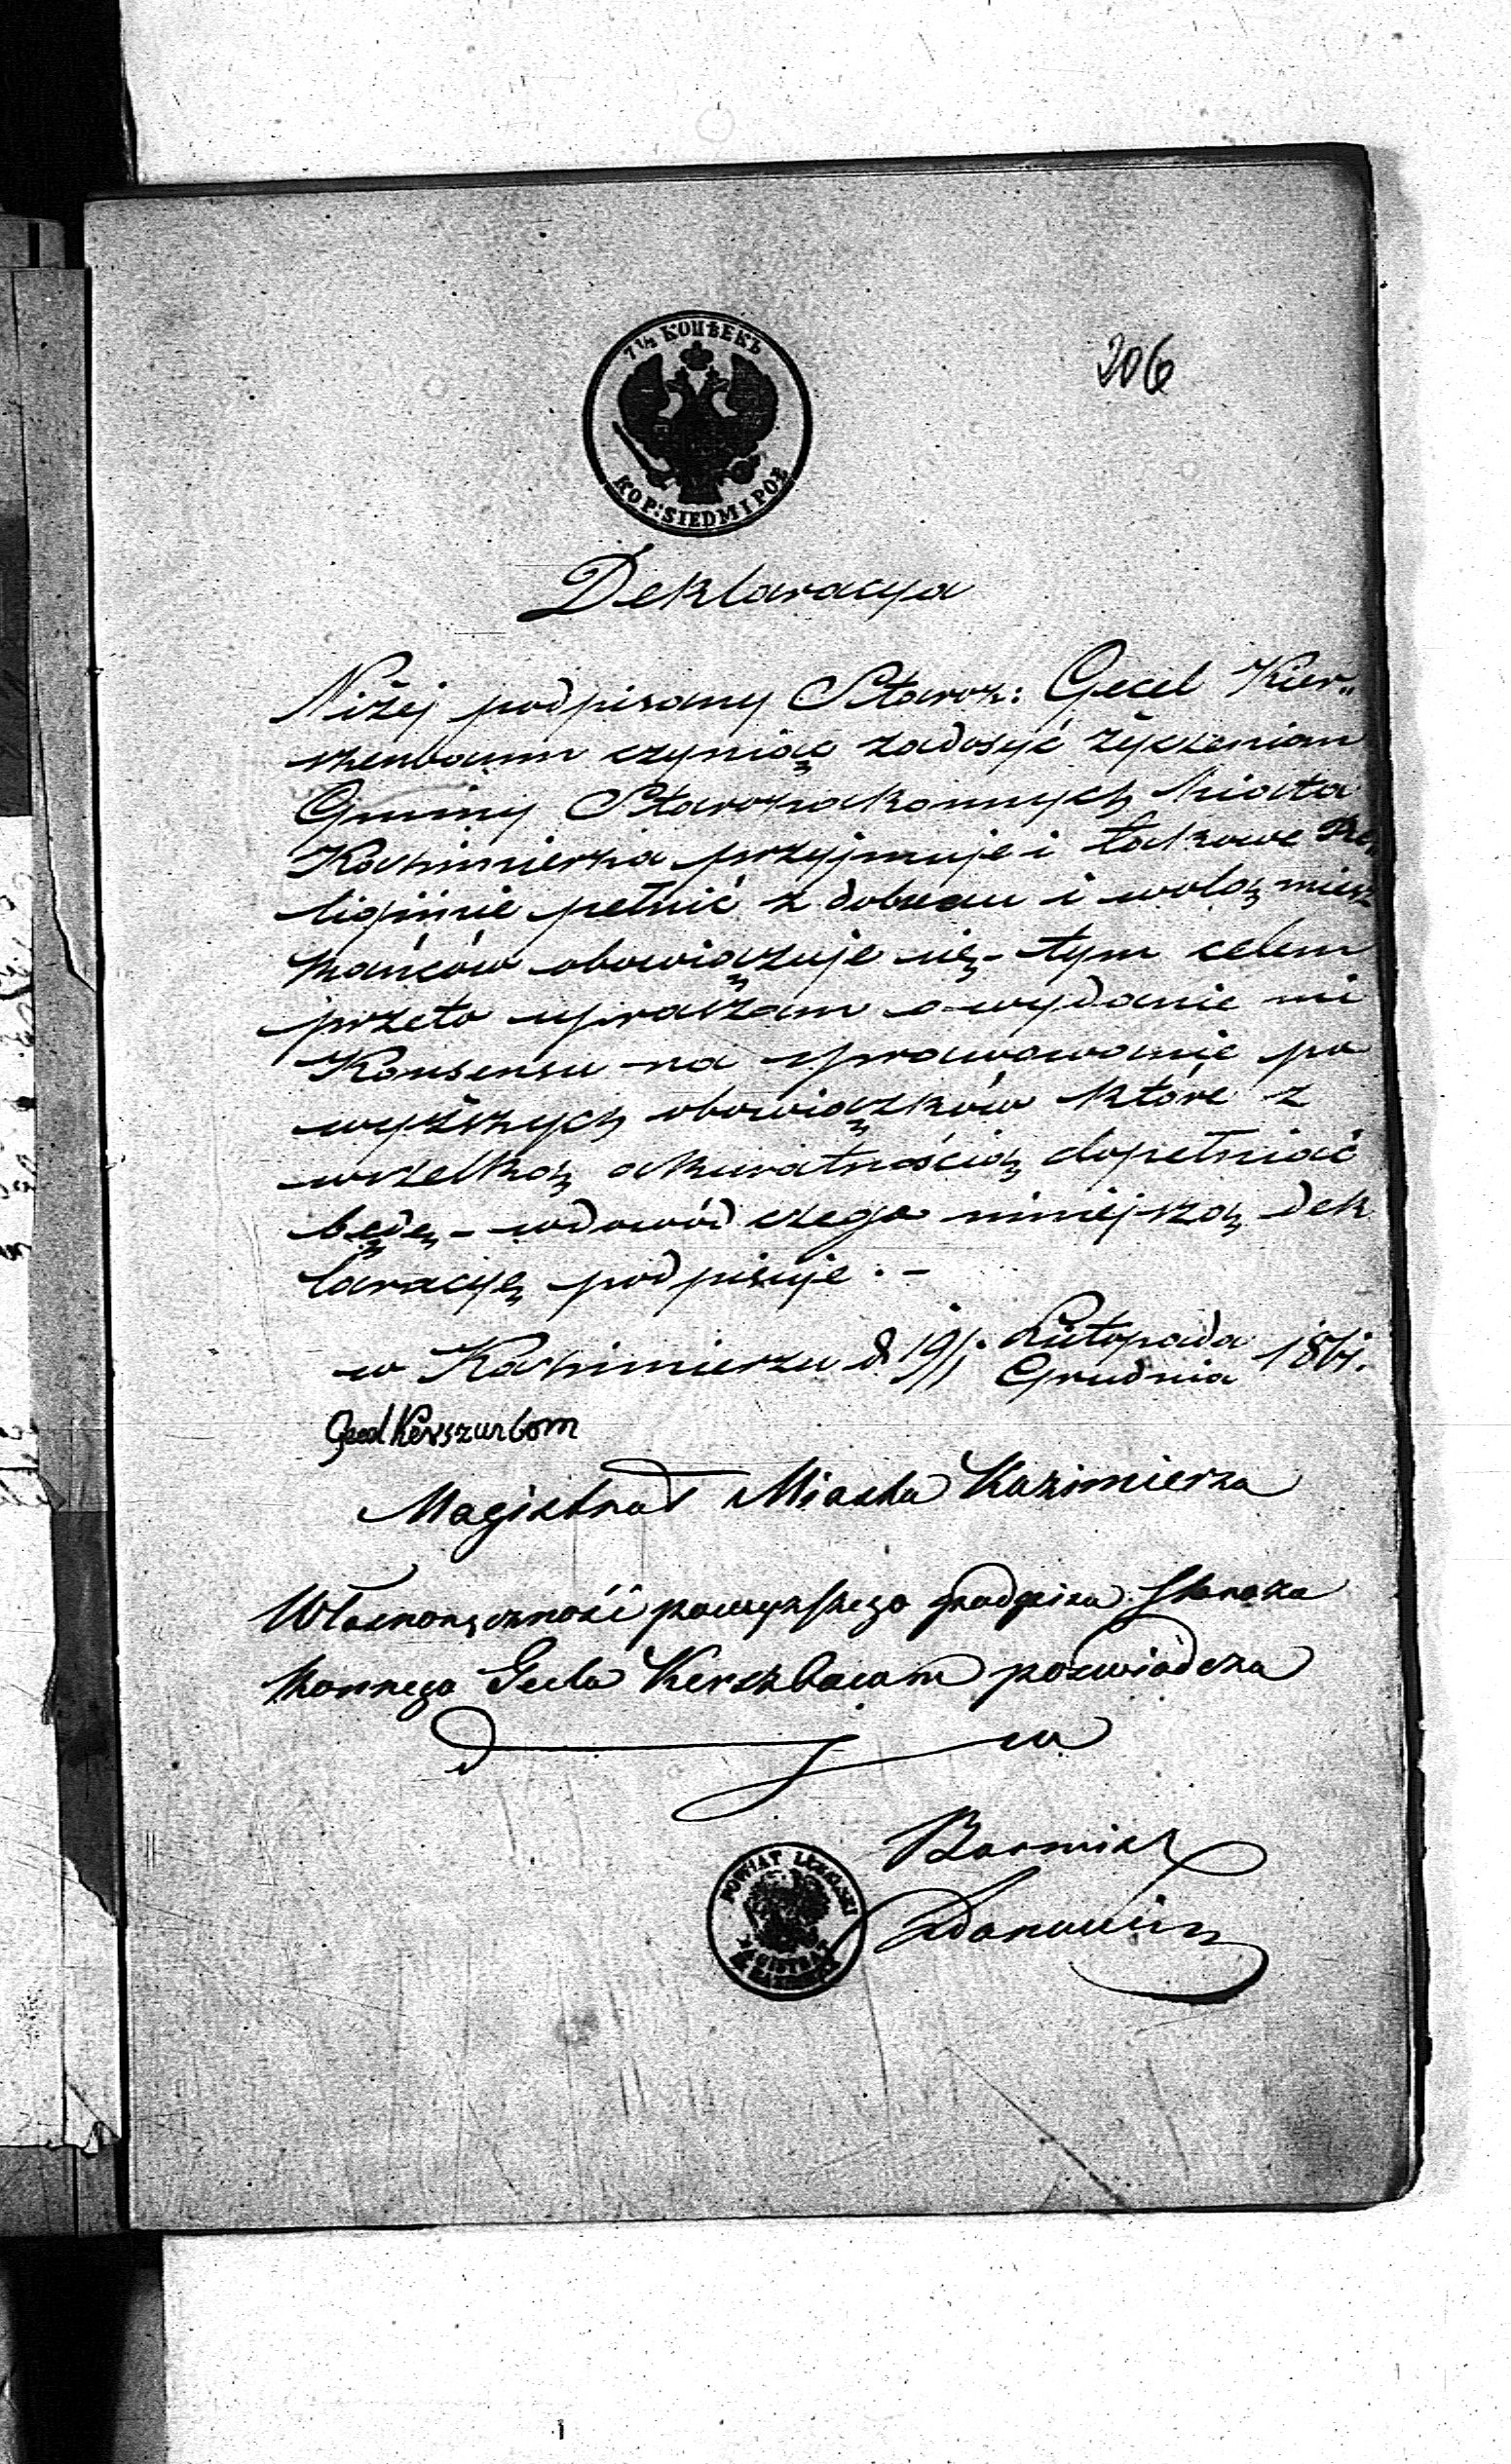 7½ КОПѢЕКЪ
KOP: SIEDM I POŁ
206
Deklaracya
Niżej podpisany Staroz: Gecel Kier„
szenbaum czyniąc zadosyć życzeniom
Gminy Starozakonnych Miasta
Kazimierza przyjmuje i takowe Re„
ligijnie pełnić z dobrem i wolą miesz
kańców obowiązuje się - tym celem
przeto upraszam o wydanie mi
Konsensu na sprawowanie po
wyższych obowiązków które z
wszelką akuratnością dopełniać
będę, - wdowód czego niniejszą dek
laracyę podpisuje. -
w Kazimierzu d. 19/1. Listopada
Grudnia 1861.
Gecel Kerszunbom
Magistrat Miasta Kazimierza
Własnoręczność powyższego podpisu Staroza
konnego Gecla Kerszbaum poświadcza
Burmistrz
POWIAT LUBELSKI
MAGISTRAT
M. KAZIMIERZA